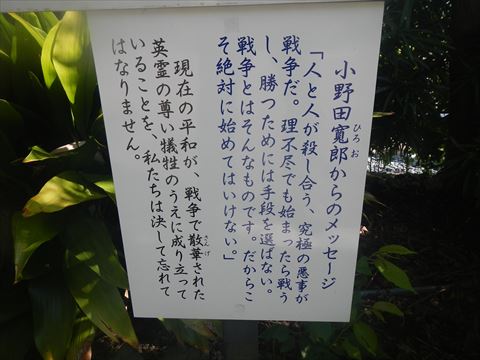 小野田寛郎からのメッセージ
ひろお
「人と人が殺し合う、究極の悪事が
戦争だ。理不尽でも始まったら戦う
し、勝つためには手段を選ばない。
戦争とはそんなものです。だからこ
そ絶対に始めてはいけない。」
現在の平和が、戦争で散華された
さんげ
英霊の尊い犠牲のうえに成り立って
いることを、私たちは決して忘れて
はなりません。